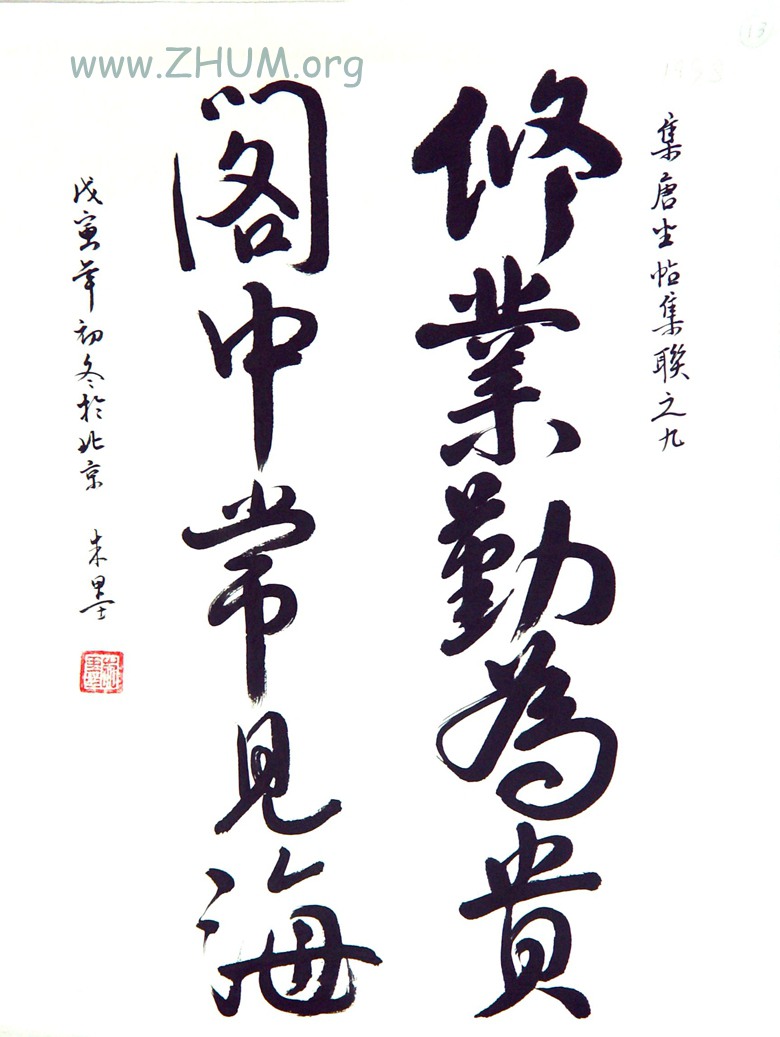 www.ZHUM.org
集唐坐帖集聯之九
修業勤為貴
閣中常見海
戊寅年初冬於北京 朱墨